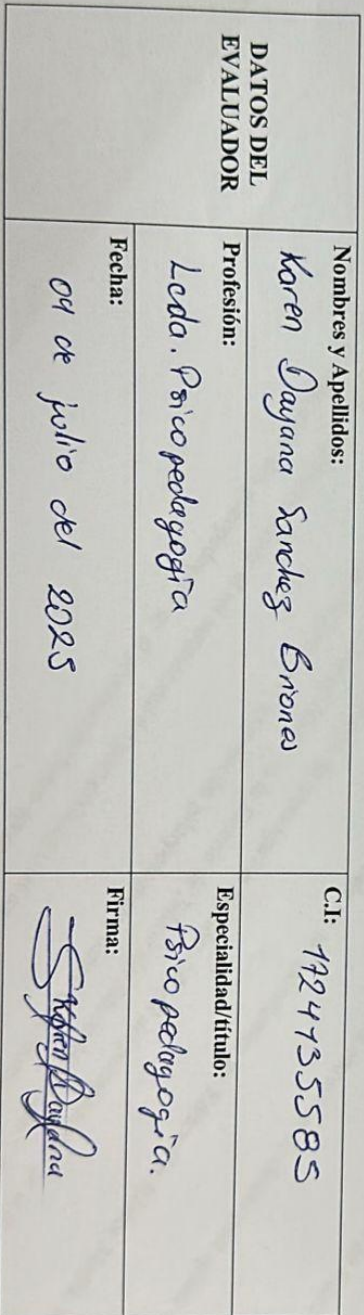 DATOS DEL
EVALUADOR
Nombres y Apellidos:
Karen Dayana Sanchez Briones
C.I: 1724735585
Profesión:
Lcda. Psicopedagogía
Especialidad/título:
Psicopedagogía.
Fecha:
09 de julio del 2025
Firma:
Karen Dayana